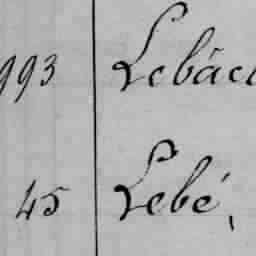 993 Lebáct
45 Lebé,